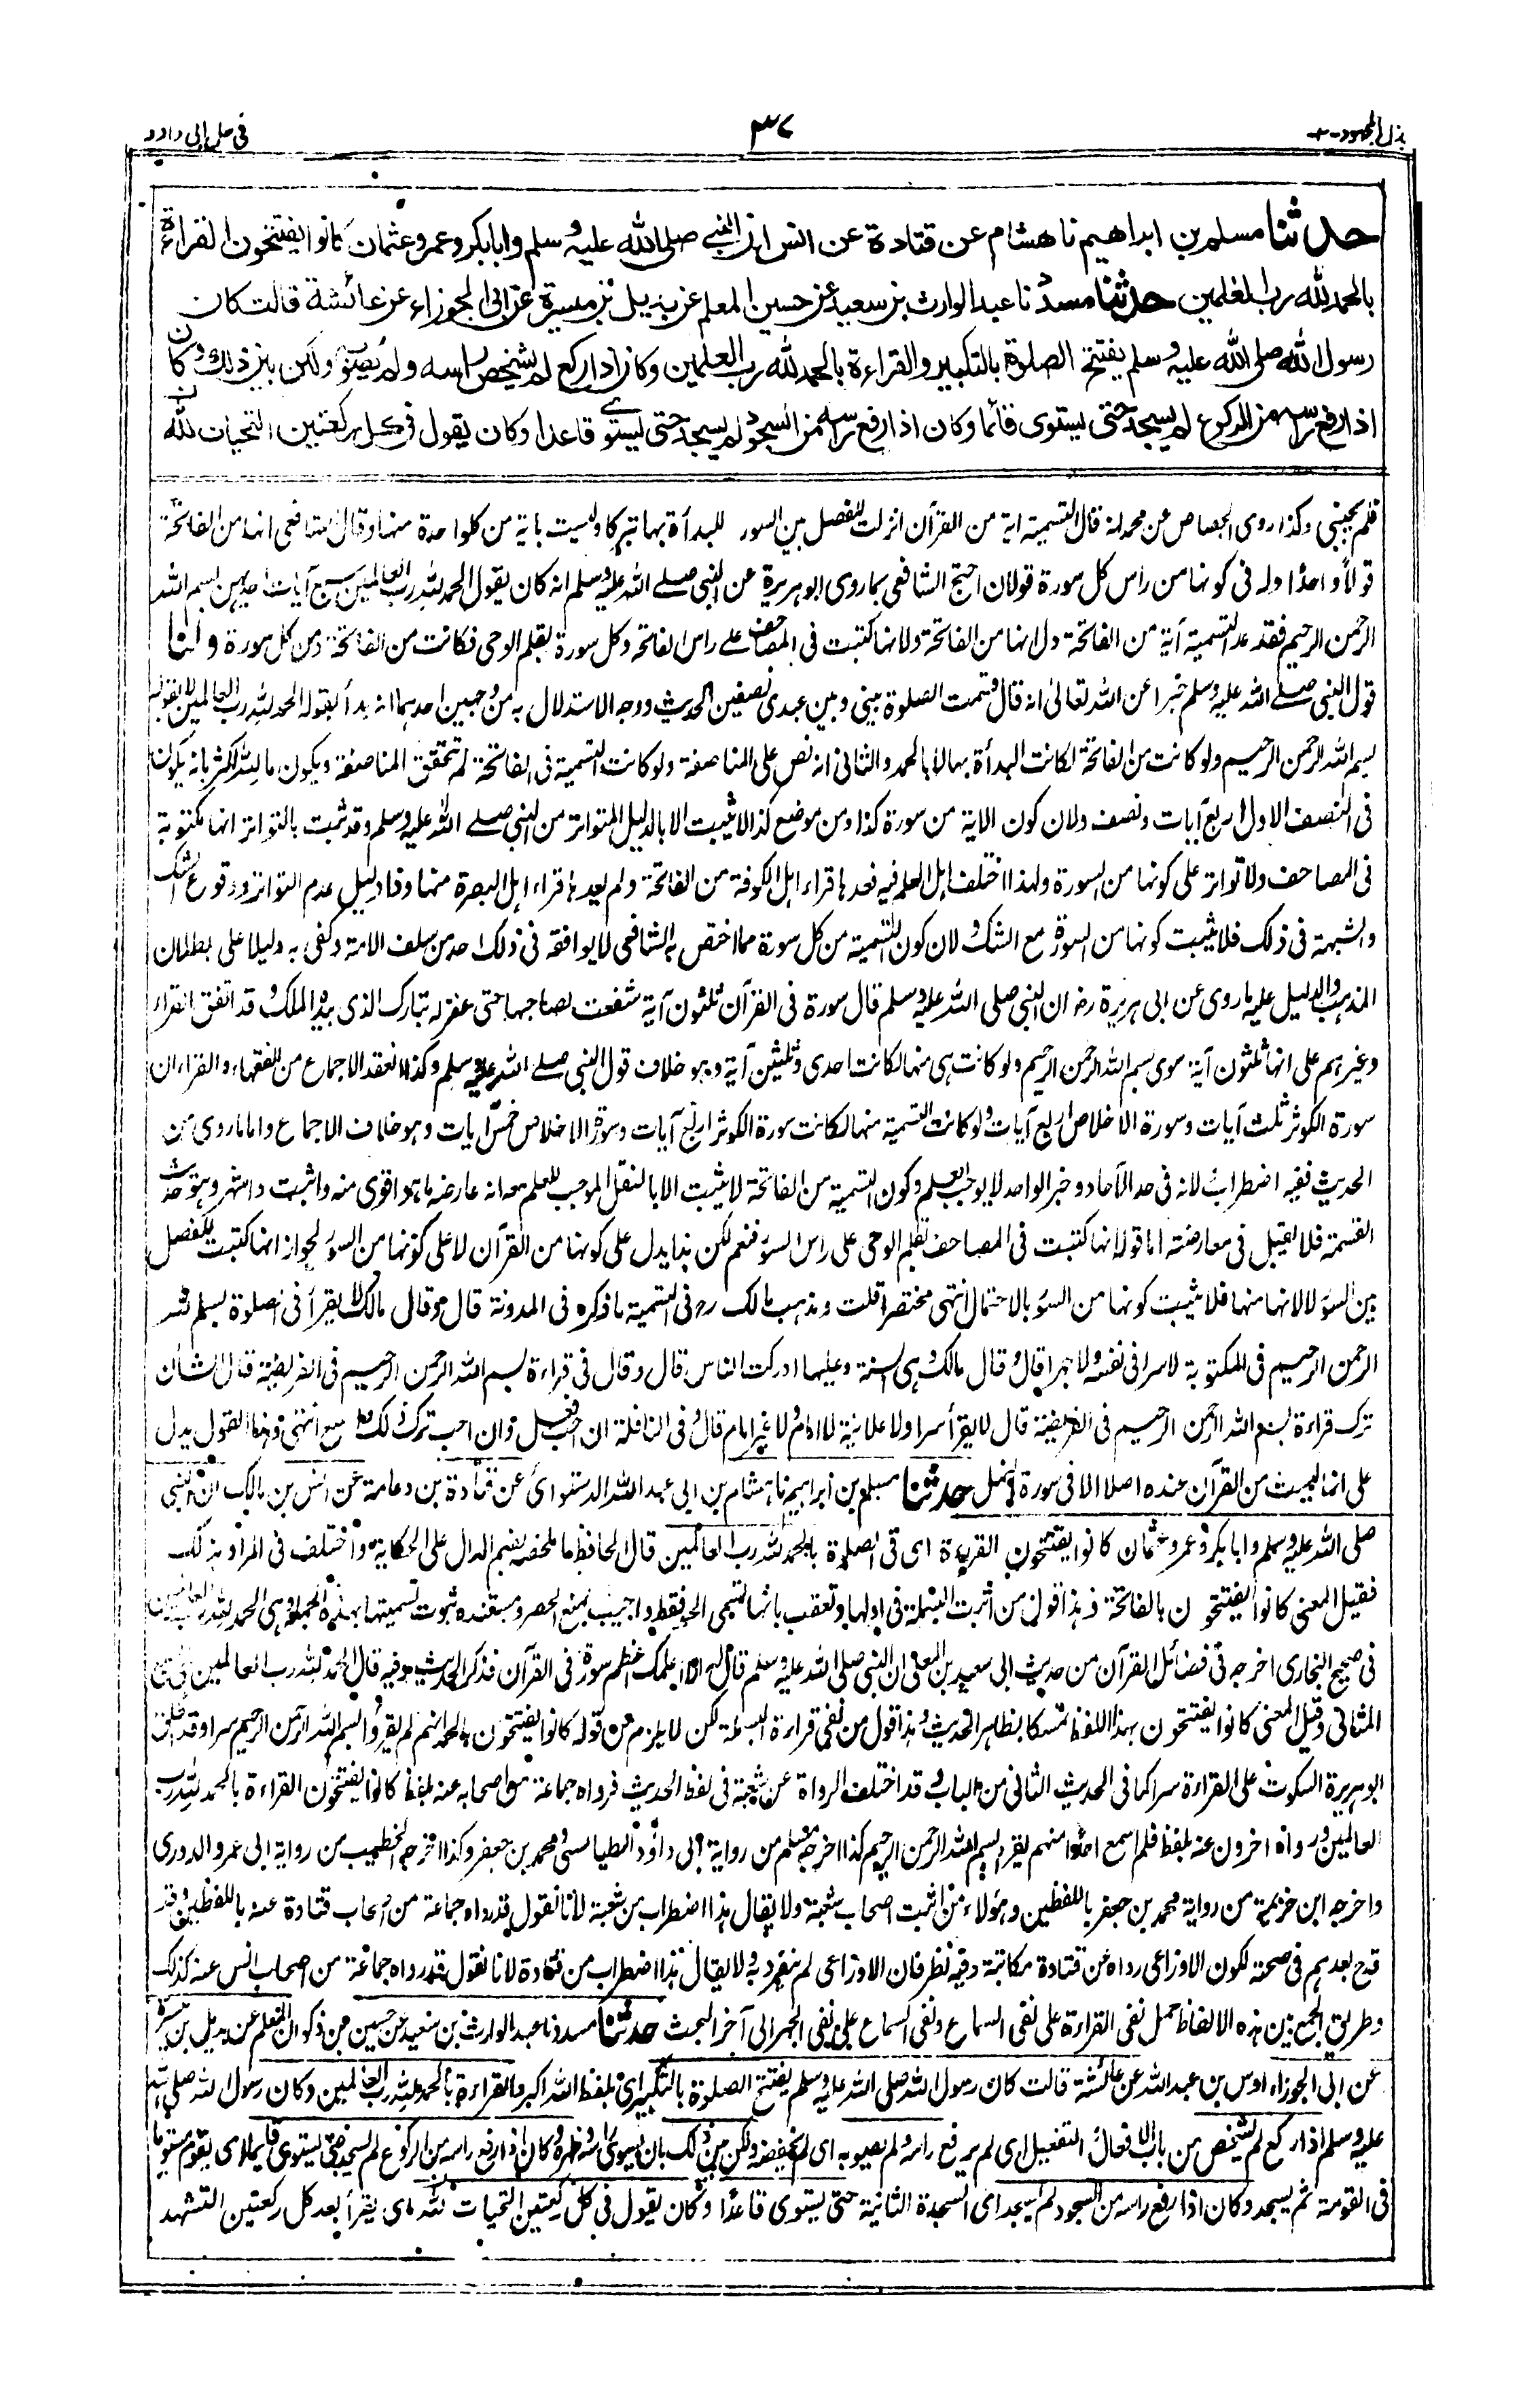 بذل المجهود-٢
٣٢
في حل ابي داود
حدثنا مسلم بن ابراهيم نا هشام عن قتادة عن انس ان النبي صلى الله عليه وسلم وابابكر وعمر وعثمان كانوا يفتتحون القراءة
بالحمد لله رب العلمين حدثنا مسدد نا عبد الوارث بن سعيد عن حسين المعلم عن بديل بن ميسرة عن ابي الجوزاء عن عائشة قالت كان
رسول الله صلى الله عليه وسلم يفتتح الصلوة بالتكبير والقراءة بالحمد لله رب العلمين وكان اذا ركع لم يشخص راسه ولم يصوبه ولكن بين ذلك وكان
اذا رفع راسه من الركوع لم يسجد حتى يستوى قائما وكان اذا رفع راسه من السجود لم يسجد حتى يستوي قاعدا وكان يقول في كل ركعتين التحيات لله
فلم يجبني وكذا روى الجصاص عن محمد انه قال التسمية اية من القرآن انزلت للفصل بين السور للبدأة بها تبركا وليست باية من كل واحدة منها وقال الشافعي انها من الفاتحة
قولا واحدا وله في كونها من راس كل سورة قولان احتج الشافعي بما روى ابو هريرة عن النبي صلے الله عليه وسلم انه كان يقول الحمد لله رب العالمين سبع آيات احدىهن بسم الله
الرحمن الرحيم فقد عد التسمية آية من الفاتحة دل انها من الفاتحة ولانها كتبت في المصاحف على راس الفاتحة وكل سورة بقلم الوحى فكانت من الفاتحة ومن كل سورة ولنا
قول النبي صلے الله عليه وسلم خبرا عن الله تعالى انه قال قسمت الصلوة بيني وبين عبدي نصفين الحديث ووجه الاستدلال به من وجهين احدهما انه بدأ بقوله الحمد لله رب العالمين لا بقوله
بسم الله الرحمن الرحيم ولو كانت من الفاتحة لكانت البدأة بها لا بالحمد والثاني انه نص على المناصفة ولو كانت التسمية في الفاتحة لم تتحقق المناصفة ويكون ما لله اكثر بانه يكون
في النصف الاول اربع آيات ونصف ولان كون الاية من سورة كذا ومن موضع كذا لا يثبت الا بالدليل المتواتر من النبي صلے الله عليه وسلم وقد ثبت بالتواتر انها مكتوبة
في المصاحف ولا تواتر على كونها من السورة ولهذا اختلف اهل العلم فيه فعدها قراء اهل الكوفة من الفاتحة ولم يعدها قراء اهل البصرة منها وذا دليل عدم التواتر ووقوع الشك
والشبهة في ذلك فلا يثبت كونها من السورة مع الشك ولان كون التسمية من كل سورة مما اختص به الشافعي لا يوافقه في ذلك احد من سلف الامة وكفى به دليلا على بطلان
المذهب والدليل عليه ما روى عن ابي هريرة رض ان النبي صلى الله عليه وسلم قال سورة في القرآن ثلثون آية شفعت لصاحبها حتى غفر له تبارك الذى بيده الملك وقد اتفق القراء
وغيرهم على انها ثلثون آية سوى بسم الله الرحمن الرحيم ولو كانت هى منها لكانت احدى وثلثين آية وهو خلاف قول النبي صلے الله عليه وسلم وكذا انعقد الاجماع من الفقهاء والقراء ان
سورة الكوثر ثلث آيات وسورة الاخلاص اربع آيات ولو كانت التسمية منها لكانت سورة الكوثر اربع آيات وسورة الاخلاص خمس آيات وهو خلاف الاجماع واما ما روى من
الحديث ففيه اضطراب لانه في حد الآحاد وخبر الواحد لا يوجب العلم وكون التسمية من الفاتحة لا يثبت الا بالنقل الموجب للعلم مع انه عارضه ما هو اقوى منه واثبت واشهر وهو حديث
القسمة فلا يقبل في معارضته اما قوله انها كتبت في المصاحف بقلم الوحى على راس السور فنعم لكن هذا يدل على كونها من القرآن لا على كونها من السور لجواز انها كتبت للفصل
بين السور لا لانها منها فلا يثبت كونها من السور بالاحتمال انتهى مختصرا قلت ومذهب مالك رح في التسمية ما ذكره في المدونة قال وقال مالك لا يقرأ في الصلوة بسم الله
الرحمن الرحيم في المكتوبة لا سرا في نفسه ولا جهرا قال وقال مالك وهي السنة وعليها ادركت الناس قال وقال في قراءة بسم الله الرحمن الرحيم في الفريضة قال الشأن
ترك قراءة بسم الله الرحمن الرحيم في الفريضة قال لا يقرأ سرا ولا علانية لا امام ولا غير امام قال وفي النافلة ان احب فعل وان احب ترك ذلك واسع انتهى وهذا القول يدل
على انها ليست من القرآن عنده اصلا الا في سورة النمل حدثنا مسلم بن ابراهيم نا هشام بن ابي عبد الله الدستوائى عن قتادة بن دعامة عن انس بن مالك ان النبي
صلى الله عليه وسلم وابا بكر وعمر وعثمان كانوا يفتتحون القراءة اى في الصلوة بالحمد لله رب العالمين قال الحافظ ما ملخصه بضم الدال على الحكاية واختلف في المراد بذلك
فقيل المعنى كانوا يفتتحون بالفاتحة وهذا قول من اثبت البسملة في اولها وتعقب بانها تسمى الحمد فقط واجيب بمنع الحصر ومستنده ثبوت تسميتها بهذه الجملة وهي الحمد لله رب العالمين
في صحيح البخاري اخرجه في فضائل القرآن من حديث ابي سعيد بن المعلى ان النبي صلى الله عليه وسلم قال له الا اعلمك اعظم سورة في القرآن فذكر الحديث وفيه قال الحمد لله رب العالمين هي السبع
المثاني وقيل المعنى كانوا يفتتحون بهذا اللفظ تمسكا بظاهر الحديث وهذا قول من نفى قراءة البسملة لكن لا يلزم من قوله كانوا يفتتحون بالحمد انهم لم يقرؤا بسم الله الرحمن الرحيم سرا وقد اطلق
ابو هريرة السكوت على القراءة سرا كما في الحديث الثاني من الباب وقد اختلف الرواة عن شعبة في لفظ الحديث فرواه جماعة من اصحابه عنه بلفظ كانوا يفتتحون القراءة بالحمد لله رب
العالمين ورواه اخرون عنه بلفظ فلم اسمع احدا منهم يقرا بسم الله الرحمن الرحيم كذا اخرجه مسلم من رواية ابي داؤد الطيالسي ومحمد بن جعفر وكذا اخرجه الخطيب من رواية ابي عمرو الدوري
واخرجه ابن خزيمة من رواية محمد بن جعفر باللفظين وهؤلاء من اثبت اصحاب شعبة ولا يقال هذا اضطراب من شعبة لانا نقول قد رواه جماعة من اصحاب قتادة عنه باللفظين وقد
قدح بعدهم في صحته لكون الاوزاعى رواه عن قتادة مكاتبة وفيه نظر فان الاوزاعي لم ينفرد به ولا يقال هذا اضطراب من قتادة لانا نقول قد رواه جماعة من اصحاب انس عنه كذلك
وطريق الجمع بين هذه الالفاظ حمل نفى القراءة على نفى السماع ونفى السماع على نفى الجهر الى آخر البحث حدثنا مسدد نا عبد الوارث بن سعيد عن حسين بن ذكوان المعلم عن بديل بن ميسرة
عن ابي الجوزاء اوس بن عبد الله عن عائشة قالت كان رسول الله صلى الله عليه وسلم يفتتح الصلوة بالتكبير اى بلفظ الله اكبر والقراءة بالحمد لله رب العالمين وكان رسول الله صلى الله
عليه وسلم اذا ركع لم يشخص من باب الافعال او التفعيل اى لم يرفع راسه ولم يصوبه اى لم يخفضه ولكن بين ذلك بان يسوى راسه وظهره وكان اذا رفع راسه من الركوع لم يسجد حتى يستوى قائما اى يقوم مستويا
في القومة ثم يسجد وكان اذا رفع راسه من السجود لم يسجد اى السجدة الثانية حتى يستوى قاعدا وكان يقول في كل ركعتين التحيات لله اى يقرأ بعد كل ركعتين التشهد